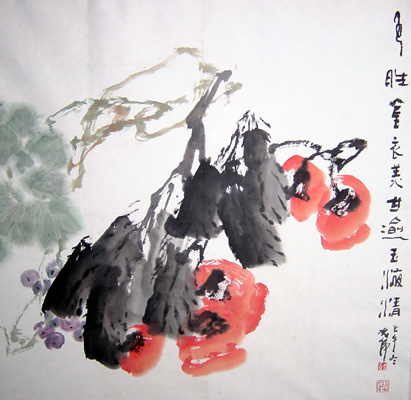 色胜金衣美甘逾玉液清